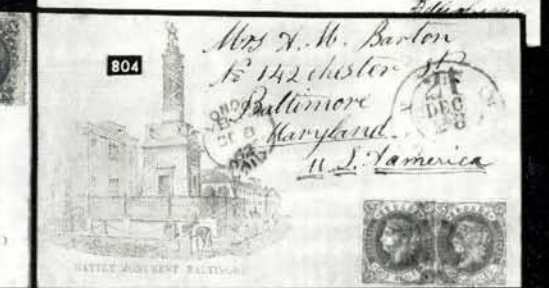 804
Mrs H. M. Barton
No 142 Chester St
Baltimore
Maryland.
U. S. America
LONDON
DEC
BATTLE MONUMENT BALTIMORE